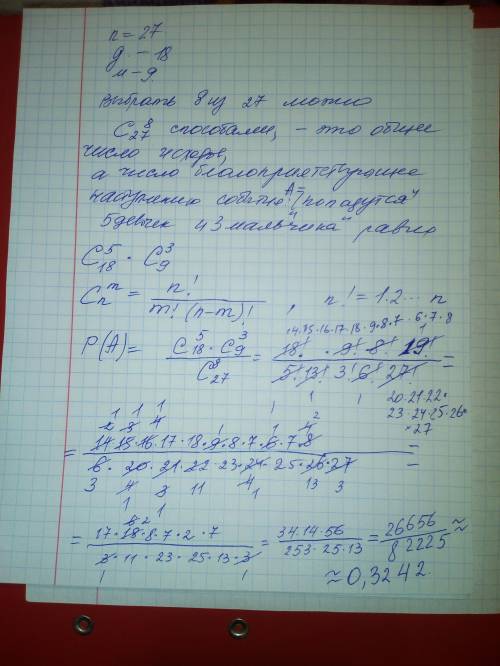 n = 27
д. - 18
м - 9
Выбрать 8 из 27 можно
C₂₇⁸ способами, - это общее
число исходов,
а число благоприятствующее
наступлению событию A = "попадутся
5 девочек и 3 мальчика" равно
C₁₈⁵ · C₉³
Cₙᵐ = n! / m! (n-m)! , n! = 1·2... n
14·15·16·17·18·9·8·7·6·7·8
P(A) = C₁₈⁵ · C₉³ / C₂₇⁸ = 18! · 9! · 8! 19! / 5! 13! 3! 6! 27! =
20·21·22·
23·24·25·26·
·27
= 14·15·16·17·18·9·8·7·6·7·8 / 6· 20·21·22·23·24·25·26·27 =
= 17·18·8·7·2·7 / 3·11·23·25·13·3 = 34·14·56 / 253·25·13 = 26656 / 82225 ≈
≈ 0,3242.